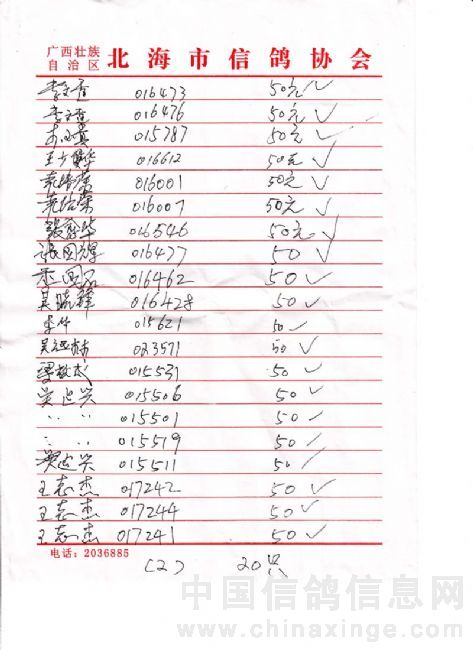 广西壮族
自治区
北海市信鸽协会
016473 50元✓
016476 50元✓
015787 50元✓
016612 50元✓
016001 50元✓
016007 50元✓
016546 50元✓
张国辉 016477 50✓
016462 50✓
吴晓锋 016428 50✓
李竹 015621 50✓
023571 50✓
015531 50✓
吴运兴 015506 50✓
〃 〃 015501 50✓
〃 〃 015519 50✓
吴运兴 015511 50✓
王志杰 017242 50✓
王志杰 017244 50✓
王志杰 017241 50✓
电话：2036885
(2) 20只
中国信鸽信息网
www.chinaxinge.com